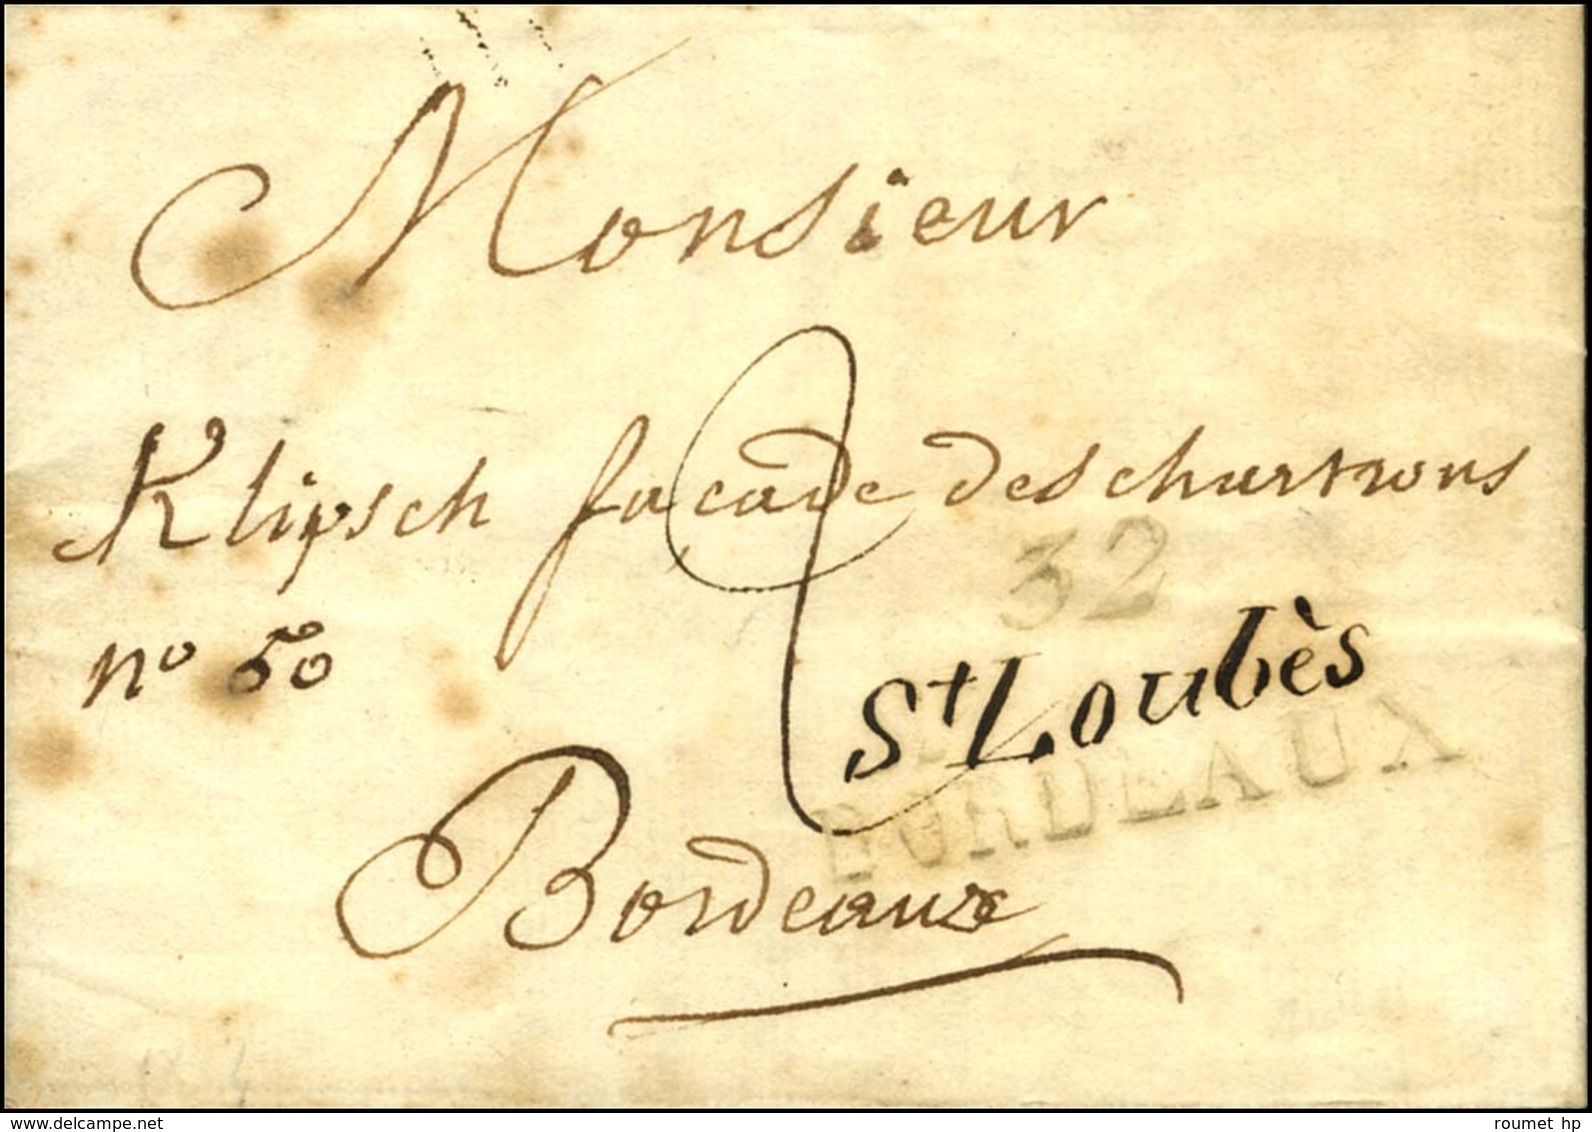 Monsieur
Klipsch facade des chartrons
32
no 50
St Loubès
BORDEAUX
Bordeaux
delcampe.net
roumet hp